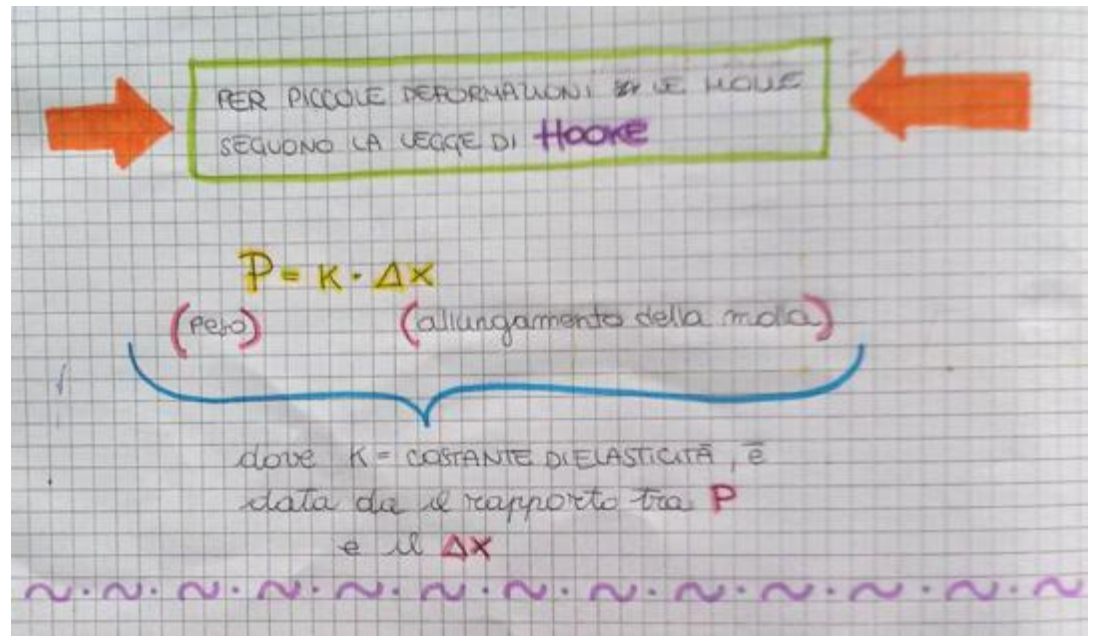 PER PICCOLE DEFORMAZIONI LE MOLLE
SEGUONO LA LEGGE DI HOOKE
P = K · ΔX
(Peso) (allungamento della molla)
dove K = COSTANTE DI ELASTICITÀ, è
data da il rapporto tra P
e il ΔX